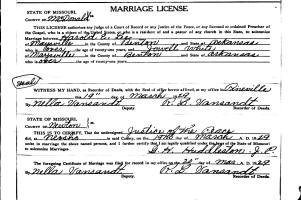 MARRIAGE LICENSE
STATE OF MISSOURI,
COUNTY OF McDonald
THIS LICENSE authorizes any Judge of a Court of Record or any Justice of the Peace, or any licensed or ordained Preacher of the Gospel, who is a citizen of the United States, or who is a resident of and a pastor of any church in this State, to solemnize Marriage between Harold E. Lee
of Maysville in the County of Benton and State of Arkansas
who is over the age of twenty-one years; and White
of Maysville in the County of Benton and State of Arkansas
who is over the age of
WITNESS MY HAND, as Recorder of Deeds, with the Seal of office hereto affixed, at my office in Pineville
(Seal) this 19" day of March 1929
Nella Vansandt Deputy. R. L. Vansandt Recorder of Deeds.
STATE OF MISSOURI,
COUNTY OF Newton
THIS IS TO CERTIFY, That the undersigned Justice of the Peace
did at Neosho in said County, on the 19th day of March A. D. 1929
unite in marriage the above named persons, and I further certify that I am legally qualified under the laws of the State of Missouri to solemnize Marriages. G. H. Huddleston J. P.
The foregoing Certificate of Marriage was filed for record in my office on the 22" day of Mar A. D. 1929
Nella Vansandt Deputy. R. L. Vansandt Recorder.